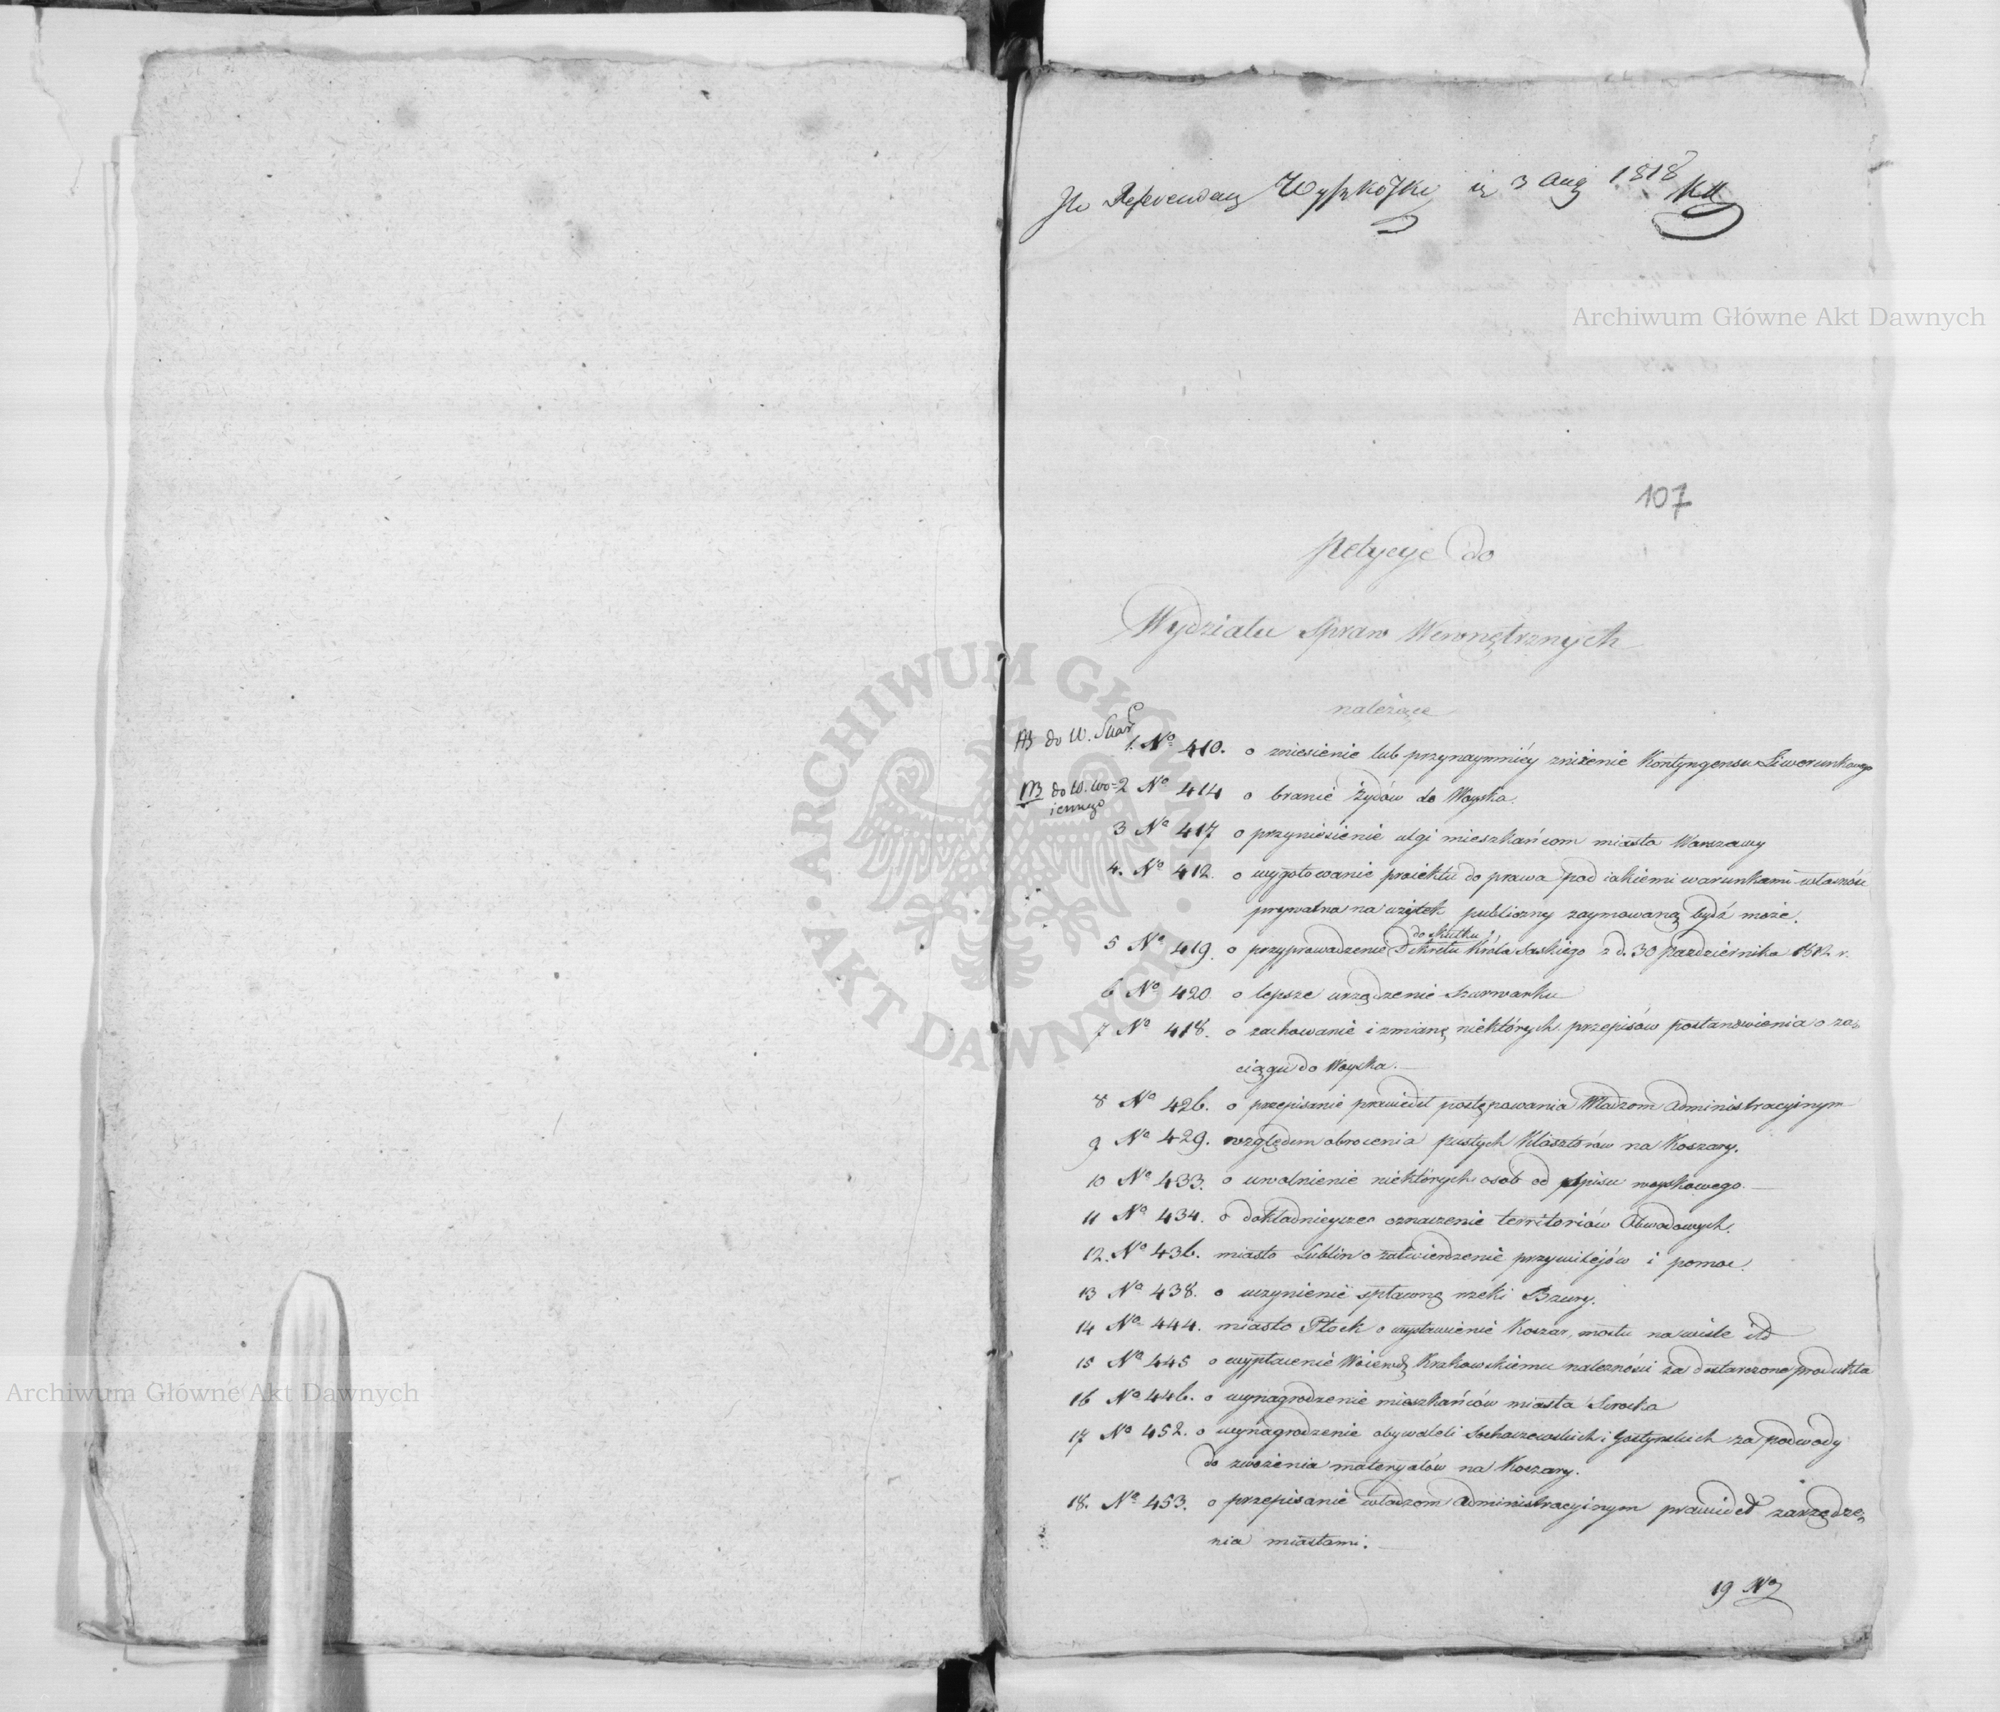 Referendarz Wyszkofski 3 Aug 1818
Archiwum Główne Akt Dawnych
107
Petycye do
Wydziału Spraw Wewnętrznych
należące
NB do W. Skar
1. No 410. o zniesienie lub przynaymniéy zniżenie Kontyngensu Liwerunkowego
NB do W. Wo=
iennego
2 No 414 o branie Żydów do Woyska.
3 No 417 o przyniesienie ulgi mieszkańcom miasta Warszawy
4. No 412. o wygotowanie proiektu do prawa pod iakiemi warunkami własność
prywatna na użytek publiczny zaymowaną bydź może.
do skutku
5 No 419. o przyprowadzenie Dekretu Króla Saskiego z d. 30 Pazdziernika 1812. r.
6 No 420 o lepsze urządzenie Szarwarku
7 No 418. o zachowanie i zmianę niektórych przepisów postanowienia o za=
ciągu do Woyska.
8 No 426. o przepisanie prawideł postępowania Władzom Administracyinym
9 No 429. względem obrocenia pustych Klasztorów na Koszary.
10 No 433. o uwolnienie niektórych osob od spisu woyskowego.
11 No 434. o dokładnieysze oznaczenie territoriów Obwodowych.
12. No 436. miasto Lublin o zatwierdzenie przywilejów i pomoc.
13 No 438. o uczynienie spławną rzeki Bzury.
14 No 444. miasto Płock o wystawienie Koszar, mostu na wiśle itd
15 No 445 o wypłacenie Woiewdz. Krakowskiemu należności za dostarczone produkta
16 No 446. o wynagrodzenie mieszkańców miasta Serocka
17 No 452. o wynagrodzenie obywateli Sochaczewskich i Gostynskich za podwody
do zwożenia materyałów na Koszary.
18. No 453. o przepisanie władzom Administracyinym prawideł zarządze=
nia miastami.
19 No
Archiwum Główne Akt Dawnych
ARCHIWUM GŁÓWNE · AKT DAWNYCH ·